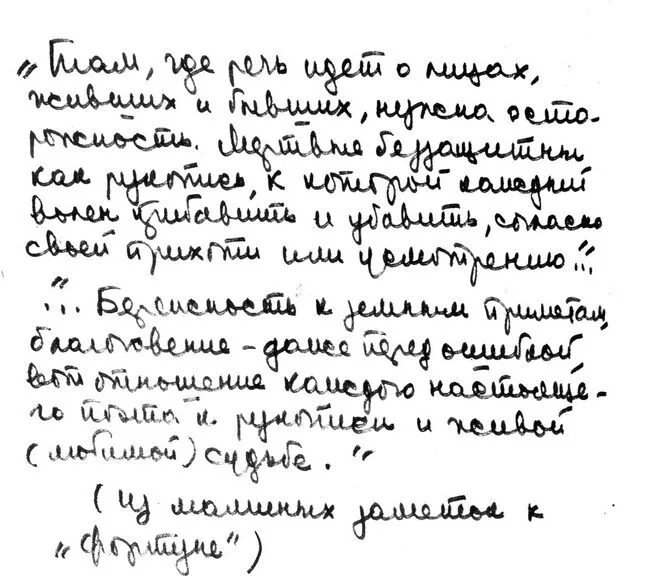 „Там, где речь идет о лицах,
живших и бывших, нужна осто-
рожность. Мертвые беззащитны
как рукопись, к которой каждый
волен прибавить и убавить, согласно
своей прихоти или усмотрению..."
"... Бережность к земным приметам,
благоговение – даже перед ошибкой,
вот отношение каждого настояще-
го поэта к рукописи и живой
(любимой) судьбе."
(Из машинных заметок к
„Фортуне")